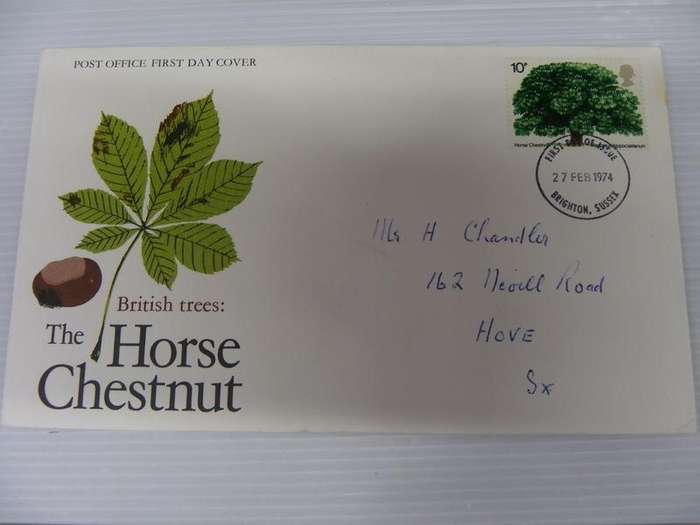 POST OFFICE FIRST DAY COVER
10P
Horse Chestnut
hippocastanum
FIRST DAY OF ISSUE
27 FEB 1974
BRIGHTON, SUSSEX
Mr H Chandler
162 Nevill Road
HOVE
Sx
British trees:
The Horse
Chestnut